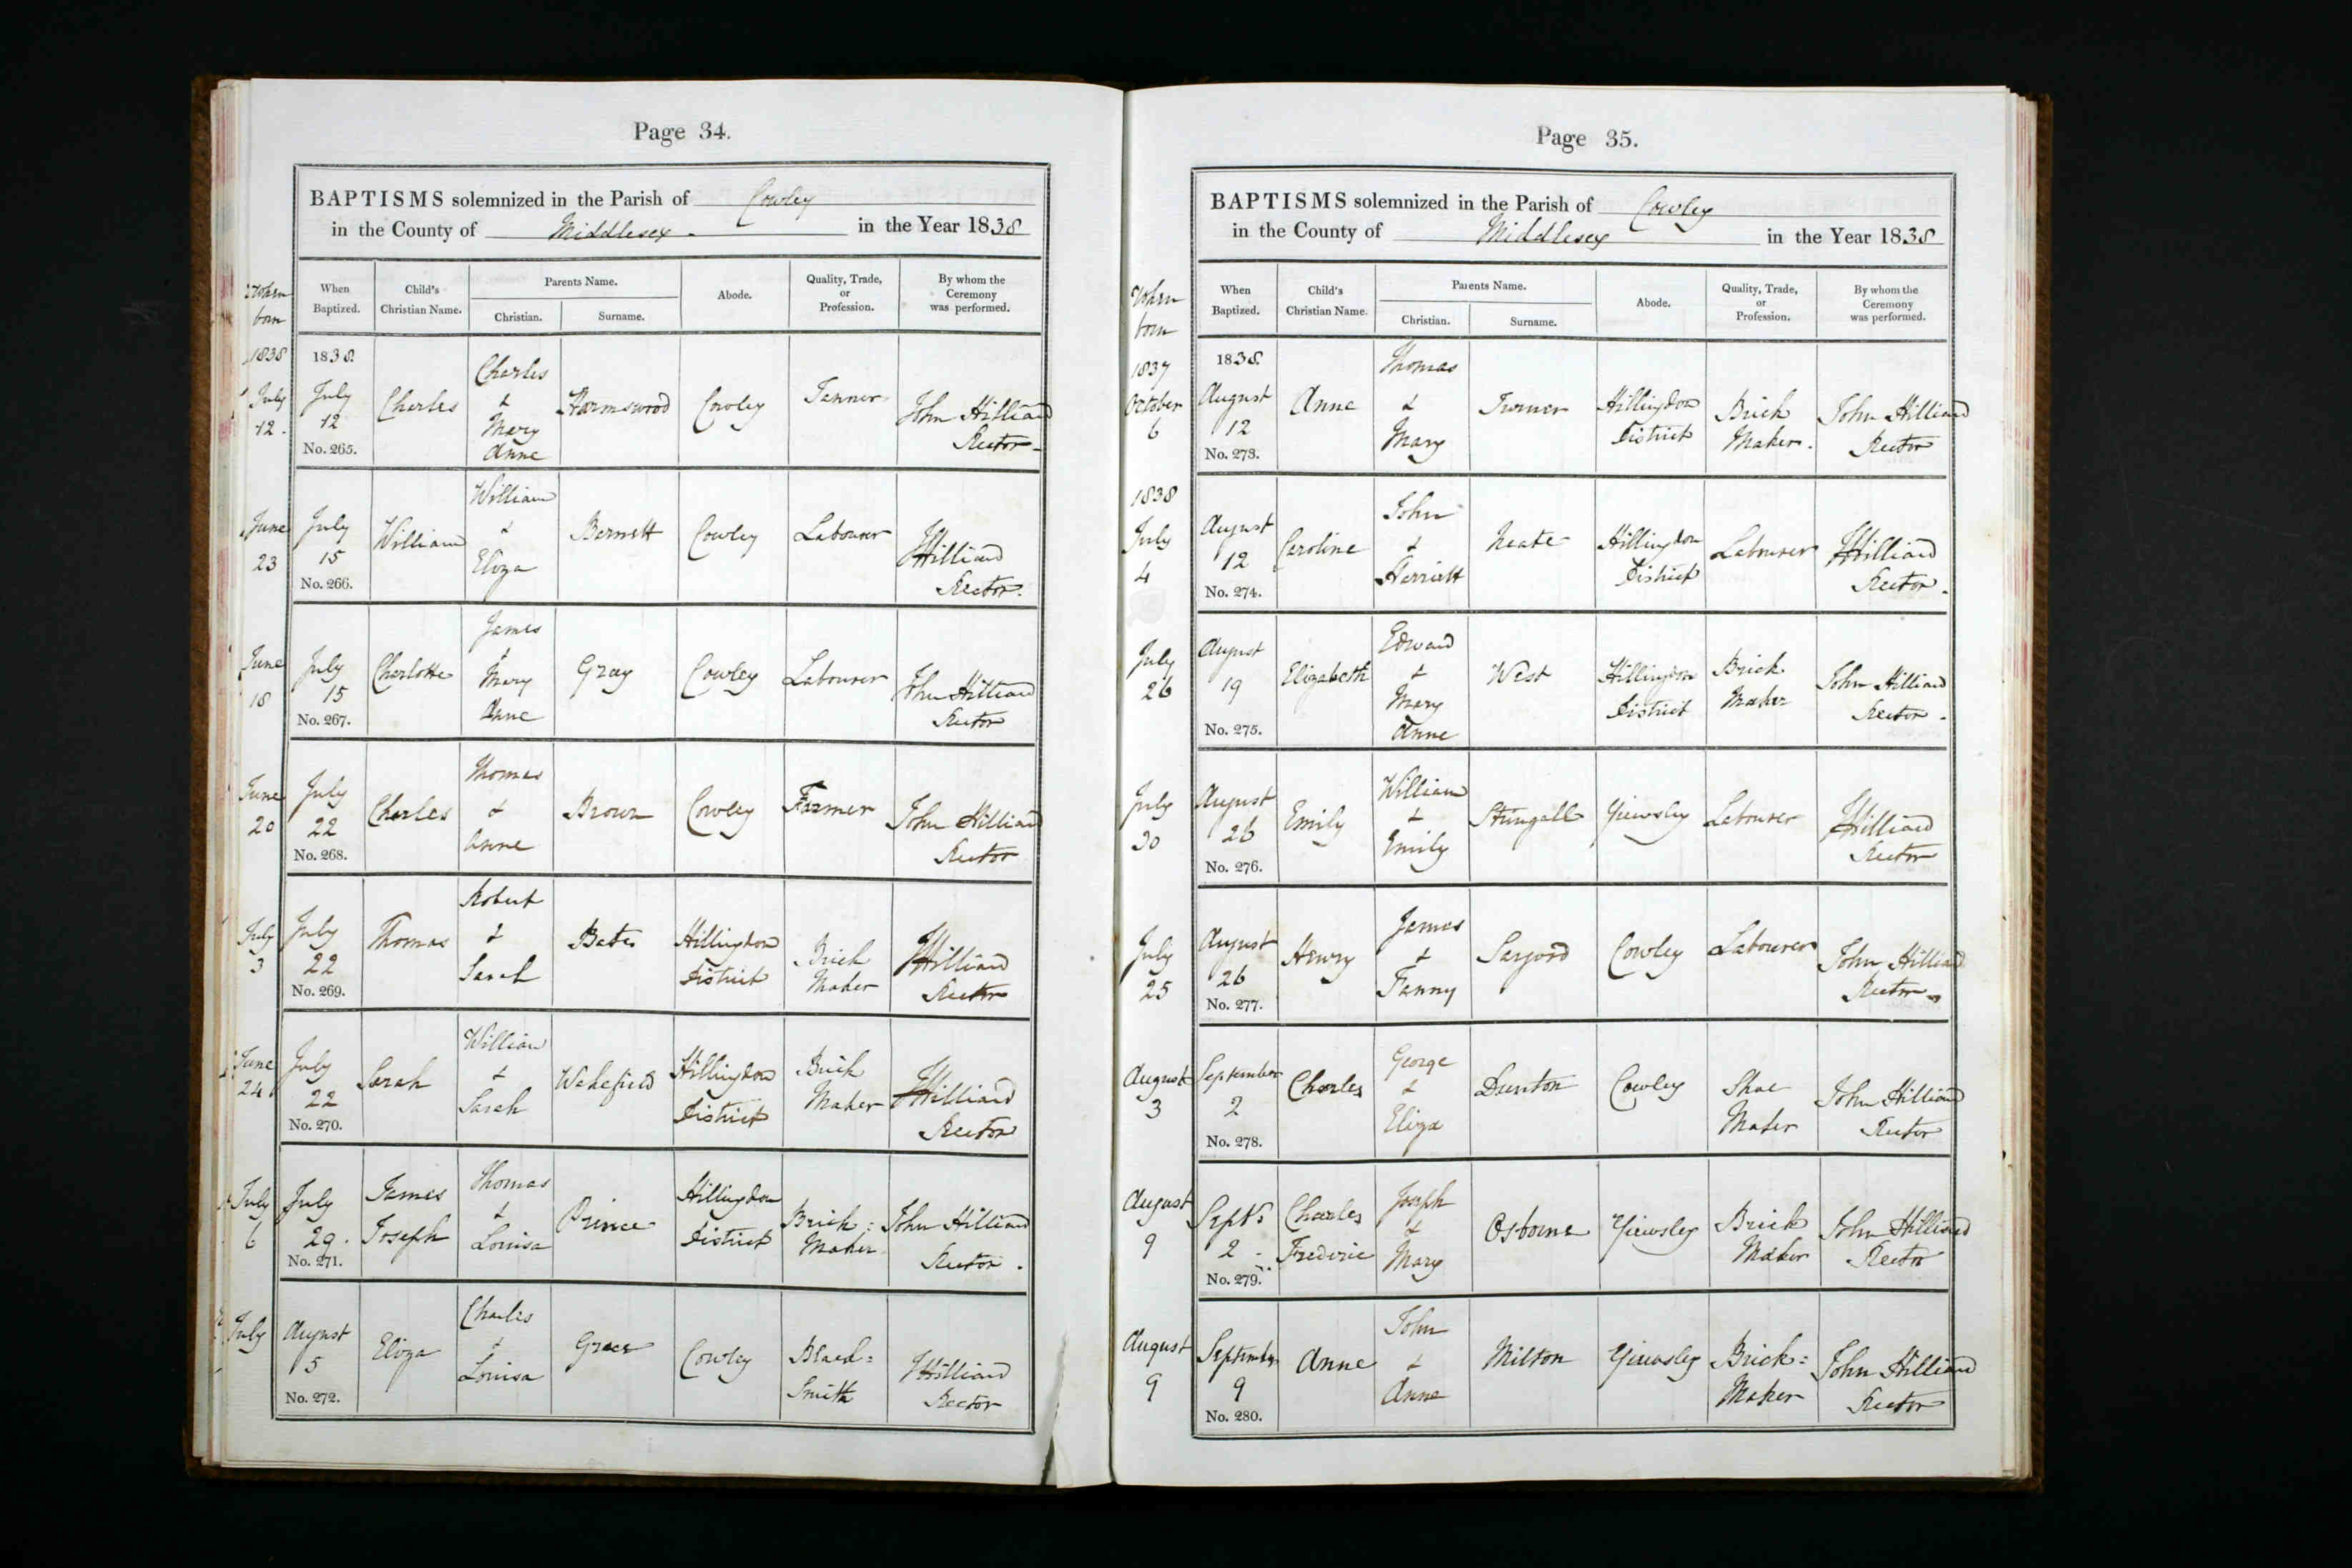 Page 34.
BAPTISMS solemnized in the Parish of Cowley
in the County of Middlesex in the Year 1838
When born
When Baptized.
Child's Christian Name.
Parents Name.
Christian.
Surname.
Abode.
Quality, Trade, or Profession.
By whom the Ceremony was performed.
1838 July 12.
1838. July 12 No. 265.
Charles
Charles & Mary Anne
Harmswood
Cowley
Tanner
John Hilliard Rector
June 23
July 15 No. 266.
William
William & Eliza
Bennett
Cowley
Labourer
JHilliard Rector.
June 18
July 15 No. 267.
Charlotte
James & Mary Anne
Gray
Cowley
Labourer
John Hilliard Rector
June 20
July 22 No. 268.
Charles
Thomas & Anne
Brown
Cowley
Farmer
John Hilliard Rector
July 3
July 22 No. 269.
Thomas
Robert & Sarah
Bates
Hillingdon District
Brick Maker
JHilliard Rector
June 24
July 22 No. 270.
Sarah
William & Sarah
Wakefield
Hillingdon District
Brick Maker
JHilliard Rector
July 6
July 29. No. 271.
James Joseph
Thomas & Louisa
Prince
Hillingdon District
Brick: Maker
John Hilliard Rector.
July
August 5 No. 272.
Eliza
Charles & Louisa
Cowley
Smith
JHilliard Rector
Page 35.
BAPTISMS solemnized in the Parish of Cowley
in the County of Middlesex in the Year 1838
When born
When Baptized.
Child's Christian Name.
Parents Name.
Christian.
Surname.
Abode.
Quality, Trade, or Profession.
By whom the Ceremony was performed.
1837 October 6
1838. August 12 No. 273.
Anne
Thomas & Mary
Turner
Hillingdon District
Brick Maker.
John Hilliard Rector
1838 July 4
August 12 No. 274.
Caroline
John & Harriett
Neate
Hillingdon District
Labourer
JHilliard Rector.
July 26
August 19 No. 275.
Elizabeth
Edward & Mary Anne
West
Hillingdon District
Brick Maker
John Hilliard Rector.
July
August 26 No. 276.
Emily
William & Emily
Yiewsley
Labourer
JHilliard Rector
July 25
August 26 No. 277.
Henry
James & Fanny
Cowley
Labourer
John Hilliard Rector
August 3
September 2 No. 278.
Charles
George & Eliza
Dunton
Cowley
Shoe Maker
John Hilliard Rector
August 9
2. No. 279.
Charles Frederic
Joseph & Mary
Osborne
Yiewsley
Brick Maker
John Hilliard Rector
August 9
September 9 No. 280.
Anne
John & Anne
Milton
Yiewsley
Brick: Maker
John Hilliard Rector